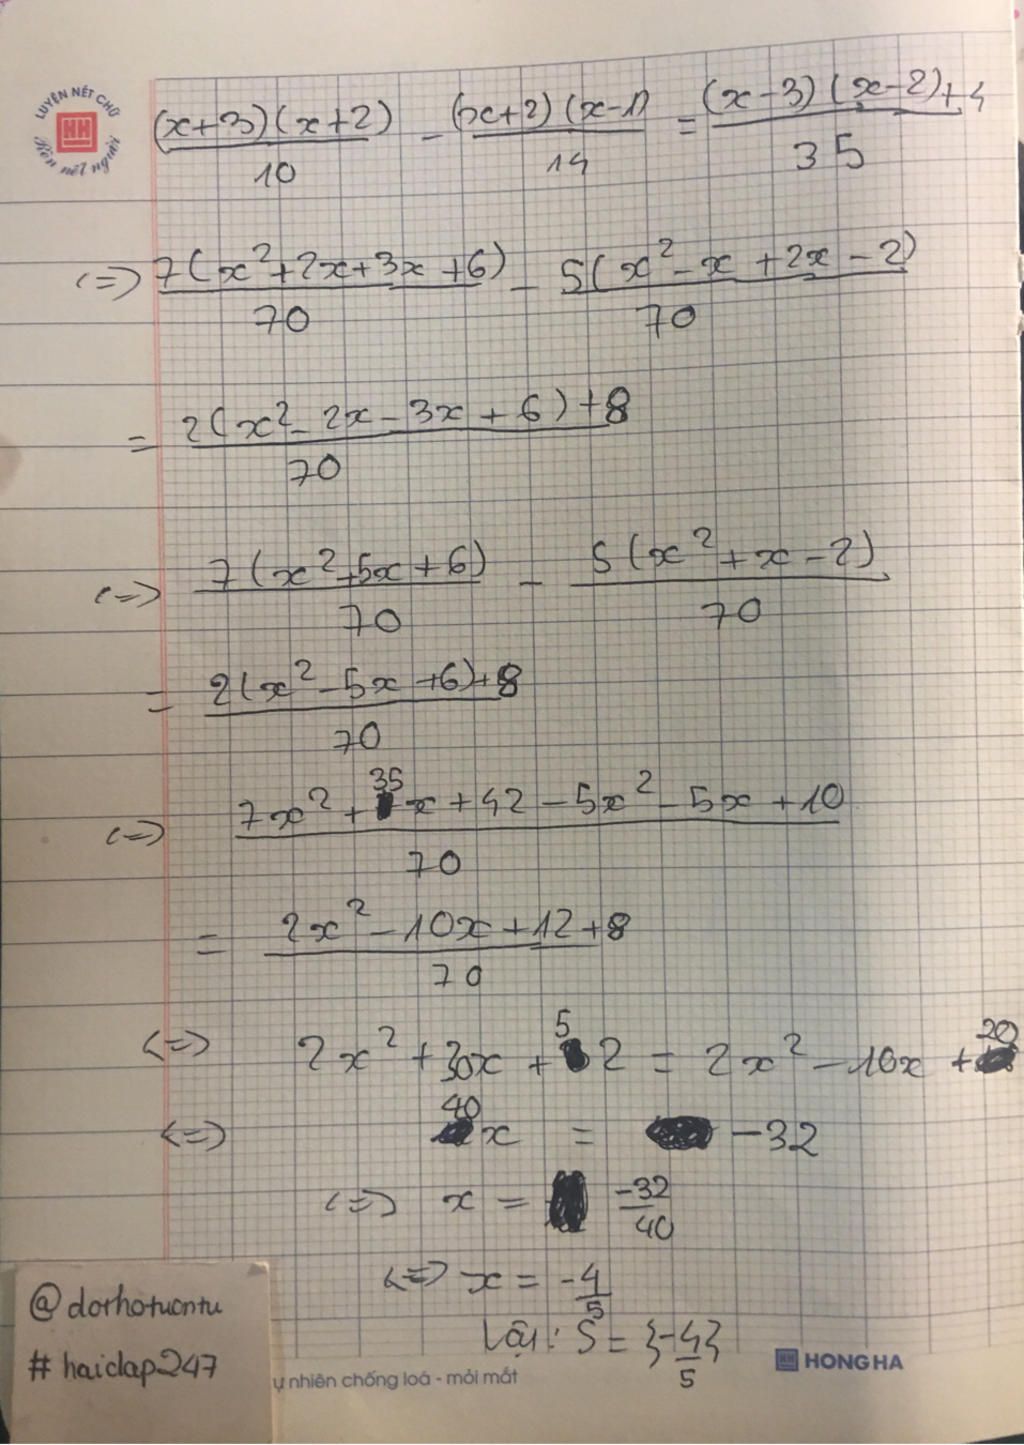 LUYỆN NÉT CHỮ
HH
Rèn nết người
(x+3)(x+2)/10 - (x+2)(x-1)/14 = (x-3)(x-2)+4/35
<=> 7(x²+2x+3x+6)/70 - 5(x²-x+2x-2)/70
= 2(x²-2x-3x+6)+8/70
<=> 7(x²+5x+6)/70 - 5(x²+x-2)/70
= 2(x²-5x+6)+8/70
<=> 7x²+35x+42-5x²-5x+10/70
= 2x²-10x+12+8/70
<=> 2x²+30x+52 = 2x²-10x+20
<=> 40x = -32
<=> x = -32/40
<=> x = -4/5
Vậy: S = {-4/5}
@dorhotuontu
#haidap247
ự nhiên chống loá - mỏi mắt
HH HONG HA